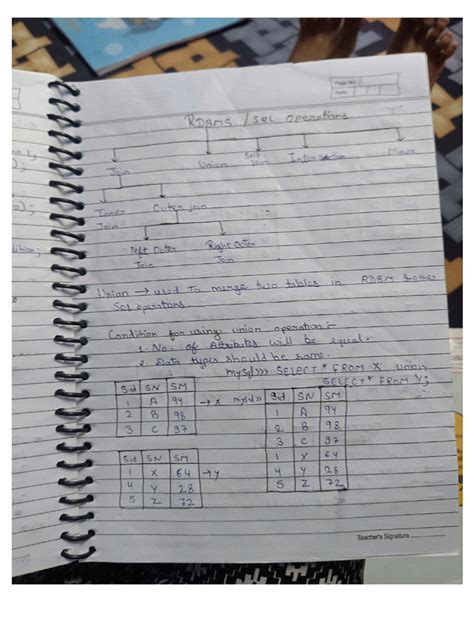 Page No.
Date
RDBMS / SQL Operations
Join Union Self Join Intersection Minus
Inner Join Outer join
Left Outer Join Right Outer Join
Union → used to marge two tables in RDBM & other
SQL operations.
Condition for using union operation:-
1. No. of Attributes will be equal.
2. Data types should be same.
mysql>>> SELECT * FROM X union
SELECT * FROM Y;
Sid SN SM
1 A 94
2 B 98
3 C 97
→ X
mysql>>
Sid SN SM
1 A 94
2 B 98
3 C 97
1 X 64
4 Y 28
5 Z 72
Sid SN SM
1 X 64
4 Y 28
5 Z 72
→ y
Teacher's Signature